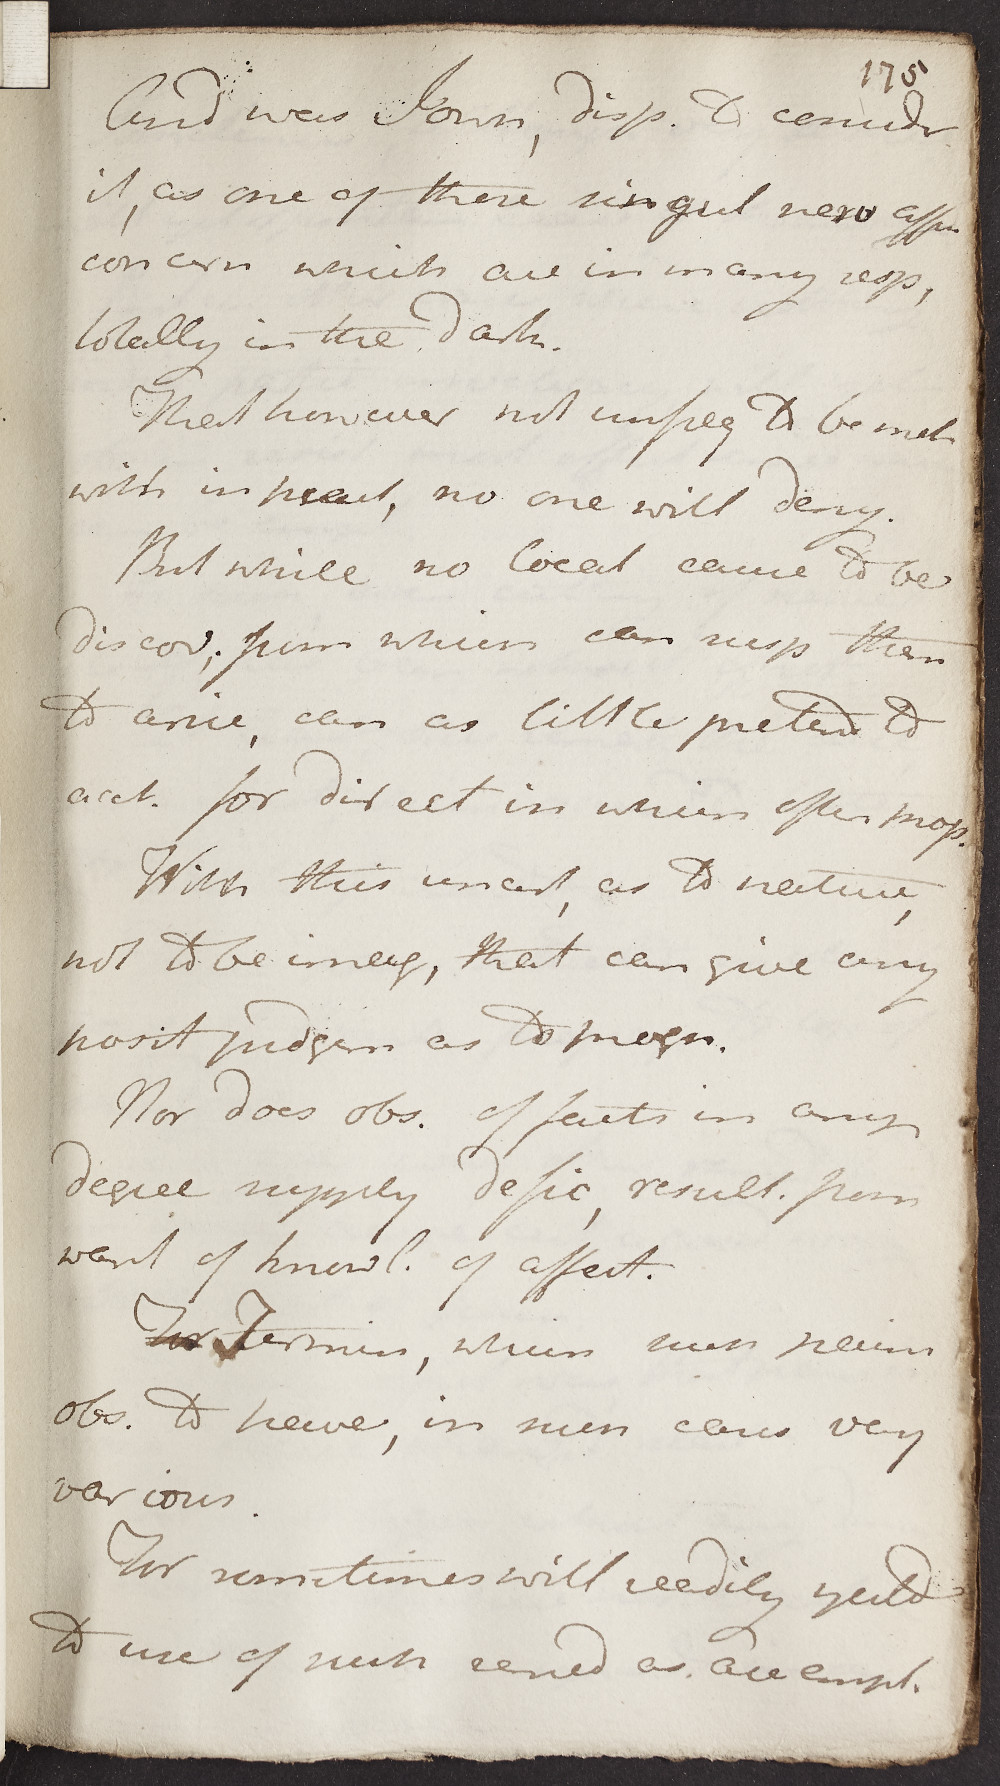 175
And was I own, disp. to consider
it, as one of these singul nerv affn
concern which are in many resp,
totally in the dark.
That however not unfreq to be met
with in pract, no one will deny.
But while no local cause to be
discov, from which can susp them
to arise, can as little pretend to
acct. for direct in which often prop.
With this uncert, as to nature,
not to be imag, that can give any
posit judgem as to progn.
Nor does obs. of facts in any
degree supply defic, result. from
want of knowl. of affect.
Termin, which such
obs. to have, in such cases very
various.
For sometimes will readily yield
to use of such remed as are empl.